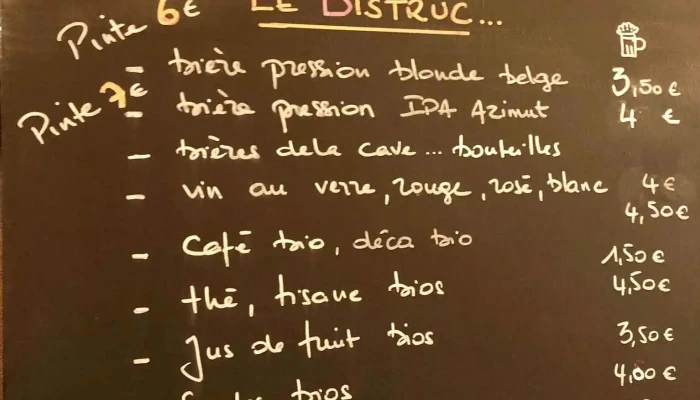 Pinte 6€ LE DISTRUC...
- bière pression blonde belge 3,50€
Pinte 7€
- bière pression IPA Azimut 4 €
- bières de la cave... bouteilles
- vin au verre, rouge, rosé, blanc 4€
4,50€
- Café bio, déca bio 1,50€
- thé, tisane bios 4,50€
- Jus de fruit bios 3,50€
4,00€
bios